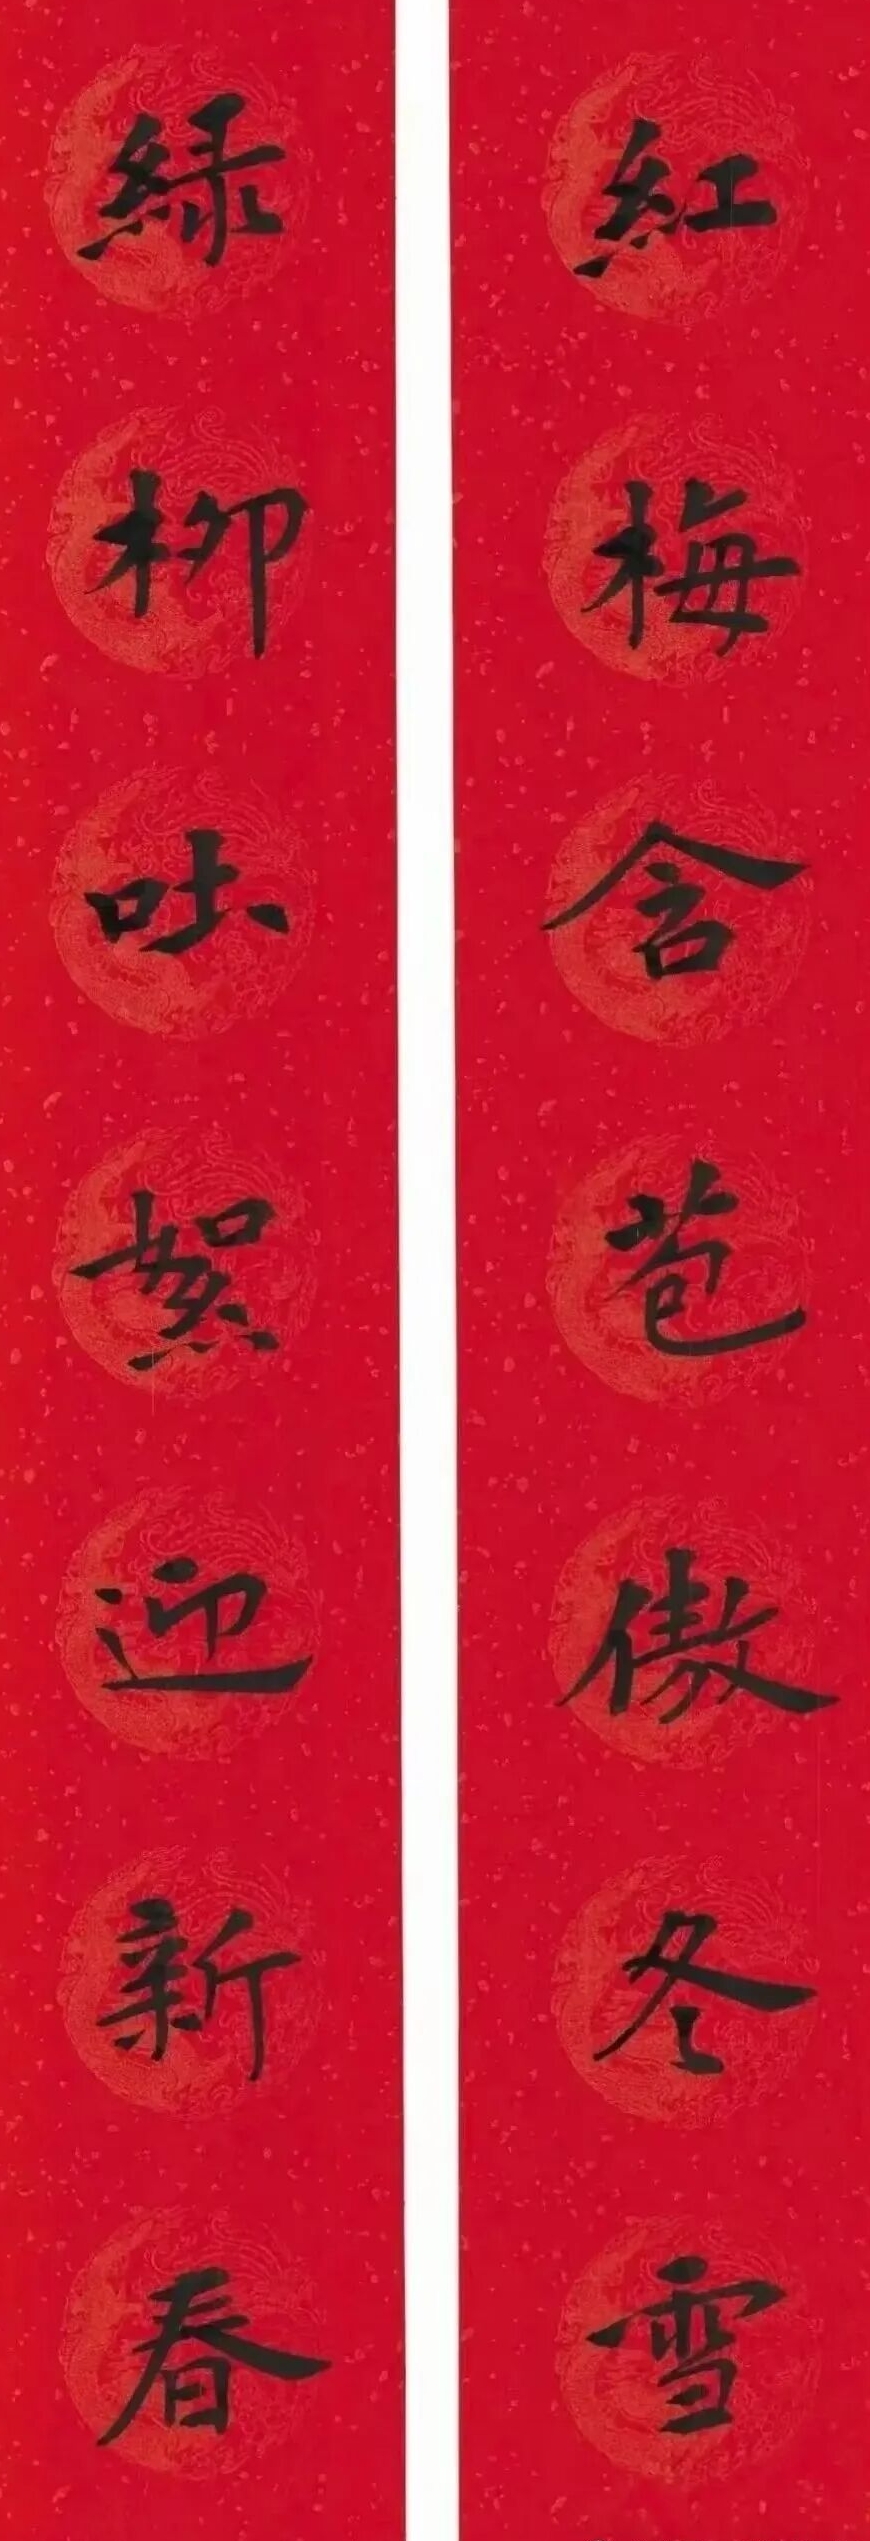 紅梅含苞傲冬雪
緑柳吐絮迎新春